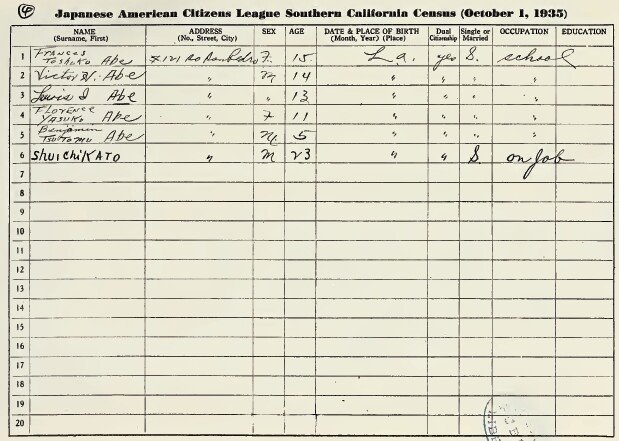 4
Japanese American Citizens League Southern California Census (October 1, 1935)
NAME (Surname, First) ADDRESS (No., Street, City) SEX AGE DATE & PLACE OF BIRTH (Month, Year) (Place) Dual Citizenship Single or Married OCCUPATION EDUCATION
1 Frances Toshiko Abe So San Pedro F. 15 L a. yes S. school
2 Victor Y. Abe " M 14 " " " "
3 Lewis I Abe " " 13 " " " "
4 Florence Yasuko Abe " F 11 " " " "
5 Benjamin Tsutomu Abe " M. 5 " " " "
6 Shuichi KATO " M 23 " " S. on job
7
8
9
10
11
12
13
14
15
16
17
18
19
20